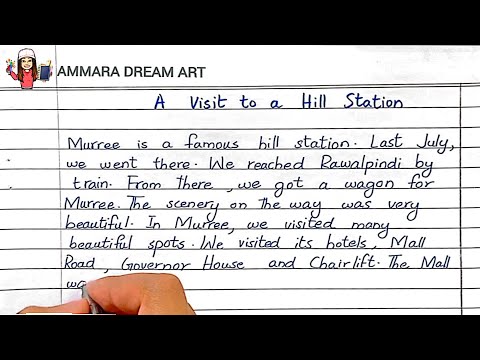 AMMARA DREAM ART
A Visit to a Hill Station
Murree is a famous hill station. Last July,
we went there. We reached Rawalpindi by
train. From there, we got a wagon for
Murree. The scenery on the way was very
beautiful. In Murree, we visited many
beautiful spots. We visited its hotels, Mall
Road, Governor House and Chairlift. The Mall
wa